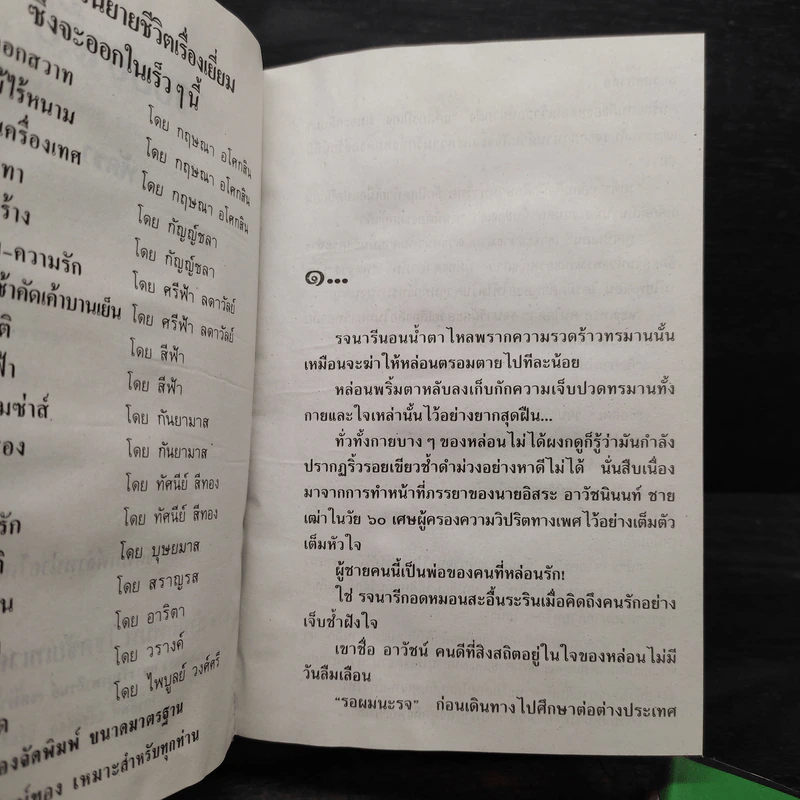 นยายชีวิตเรื่องเยี่ยม
ซึ่งจะออกในเร็ว ๆ นี้
อกสวาท โดย กฤษณา อโศกสิน
ไร้หนาม โดย กฤษณา อโศกสิน
เครื่องเทศ โดย กฤษณา อโศกสิน
ทา โดย กัญญ์ชลา
ร้าง โดย กัญญ์ชลา
-ความรัก โดย ศรีฟ้า ลดาวัลย์
ช้าคัดเค้าบานเย็น โดย ศรีฟ้า ลดาวัลย์
ติ โดย สีฟ้า
ฟ้า โดย สีฟ้า
มซ่าส์ โดย กันยามาส
อง โดย กันยามาส
โดย ทัศนีย์ สีทอง
โดย ทัศนีย์ สีทอง
รัก โดย บุษยมาส
ติ โดย สราญรส
น โดย อาริตา
โดย วรางค์
ด โดย ไพบูลย์ วงศ์ศรี
องจัดพิมพ์ ขนาดมาตรฐาน
ทอง เหมาะสำหรับทุกท่าน
๑...
รจนารีนอนน้ำตาไหลพรากความรวดร้าวทรมานนั้น
เหมือนจะฆ่าให้หล่อนตรอมตายไปทีละน้อย
หล่อนพริ้มตาหลับลงเก็บกักความเจ็บปวดทรมานทั้ง
กายและใจเหล่านั้นไว้อย่างยากสุดฝืน...
ทั่วทั้งกายบาง ๆ ของหล่อนไม่ได้ผงกดูก็รู้ว่ามันกำลัง
ปรากฏริ้วรอยเขียวช้ำดำม่วงอย่างหาดีไม่ได้ นั่นสืบเนื่อง
มาจากการทำหน้าที่ภรรยาของนายอิสระ อาวัชนินนท์ ชาย
เฒ่าในวัย ๖๐ เศษผู้ครองความวิปริตทางเพศไว้อย่างเต็มตัว
เต็มหัวใจ
ผู้ชายคนนี้เป็นพ่อของคนที่หล่อนรัก!
ใช่ รจนารีกอดหมอนสะอื้นระรินเมื่อคิดถึงคนรักอย่าง
เจ็บช้ำฝังใจ
เขาชื่อ อาวัชน์ คนดีที่สิงสถิตอยู่ในใจของหล่อนไม่มี
วันลืมเลือน
"รอผมนะรจ" ก่อนเดินทางไปศึกษาต่อต่างประเทศ